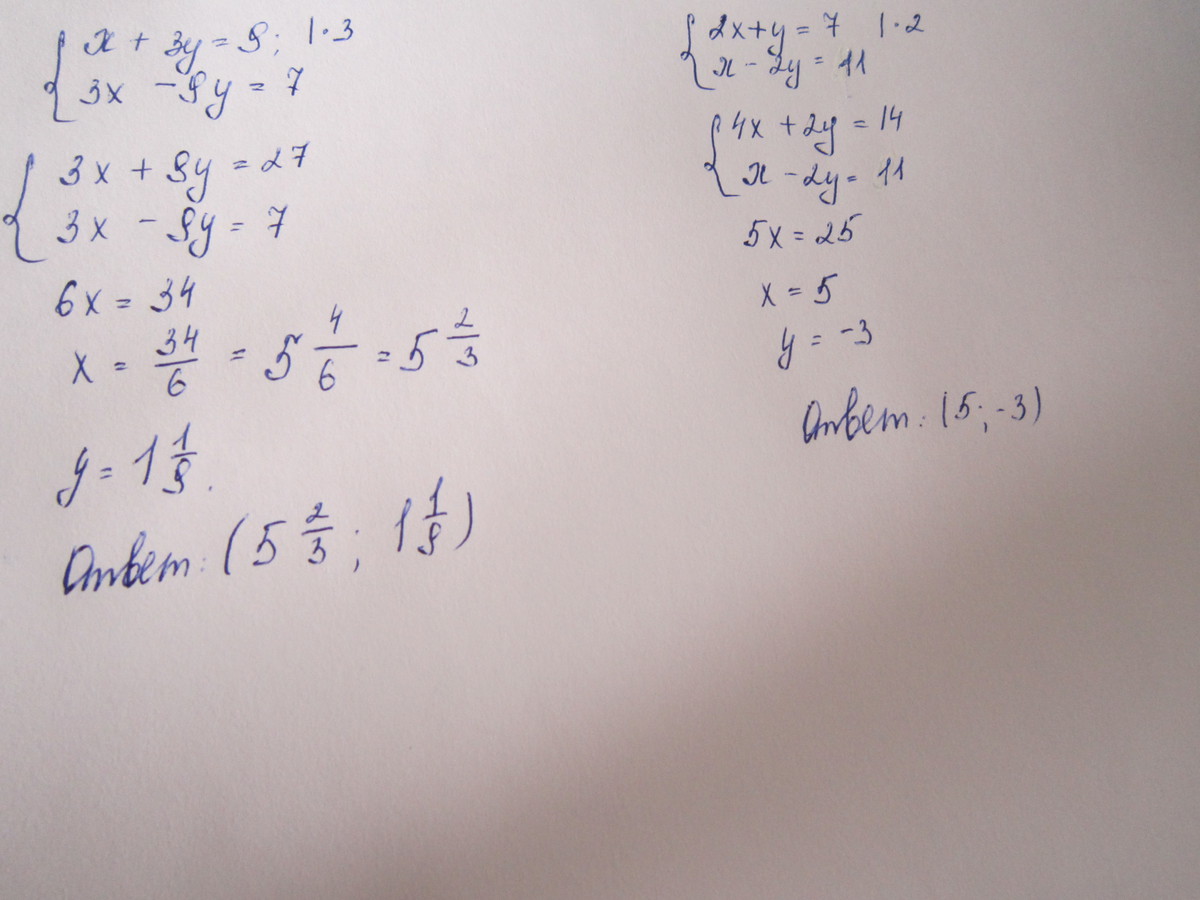 x + 3y = 9; | · 3
3x - 9y = 7
3x + 9y = 27
3x - 9y = 7
6x = 34
x = 34/6 = 5 4/6 = 5 2/3
y = 1 1/9.
Ответ: (5 2/3; 1 1/9)
2x + y = 7 | · 2
x - 2y = 11
4x + 2y = 14
x - 2y = 11
5x = 25
x = 5
y = -3
Ответ: (5; -3)